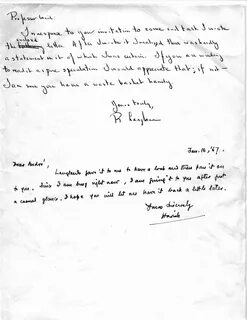 Professor Weil:
In response to your invitation to come and talk I wrote
the enclosed letter. After I wrote it I realized there was hardly
a statement in it of which I was certain. If you are willing
to read it as pure speculation I would appreciate that; if not –
I am sure you have a waste basket handy.
Yours truly,
R. Langlands
Jan. 16, '67.
Dear André,
Langlands gave it to me to have a look and then pass it on
to you. Since I am busy right now, I am giving it to you after just
a casual glance. I hope you will let me have it back a little later.
Yours Sincerely
Harish